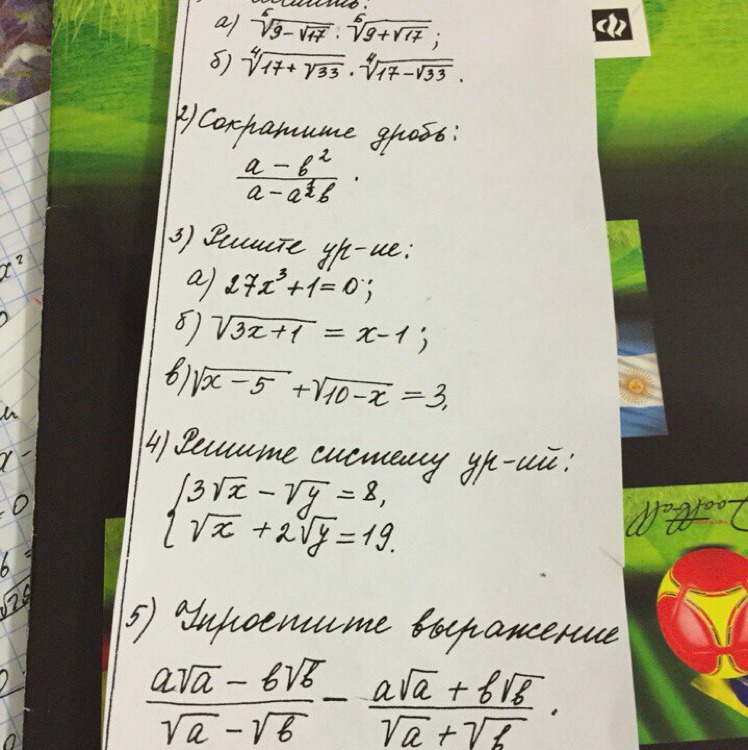 а) ⁶√(9-√17) · ⁶√(9+√17);
б) ⁴√(17+√33) · ⁴√(17-√33).
2) Сократите дробь:
a - b²
a - a½b .
3) Решите ур-ие:
а) 27x³+1=0;
б) √(3x+1) = x-1;
в) √(x-5) + √(10-x) = 3.
4) Решите систему ур-ий:
{3√x - √y = 8,
√x + 2√y = 19.
5) Упростите выражение
a√a - b√b — a√a + b√b
√a - √b √a + √b .
Football